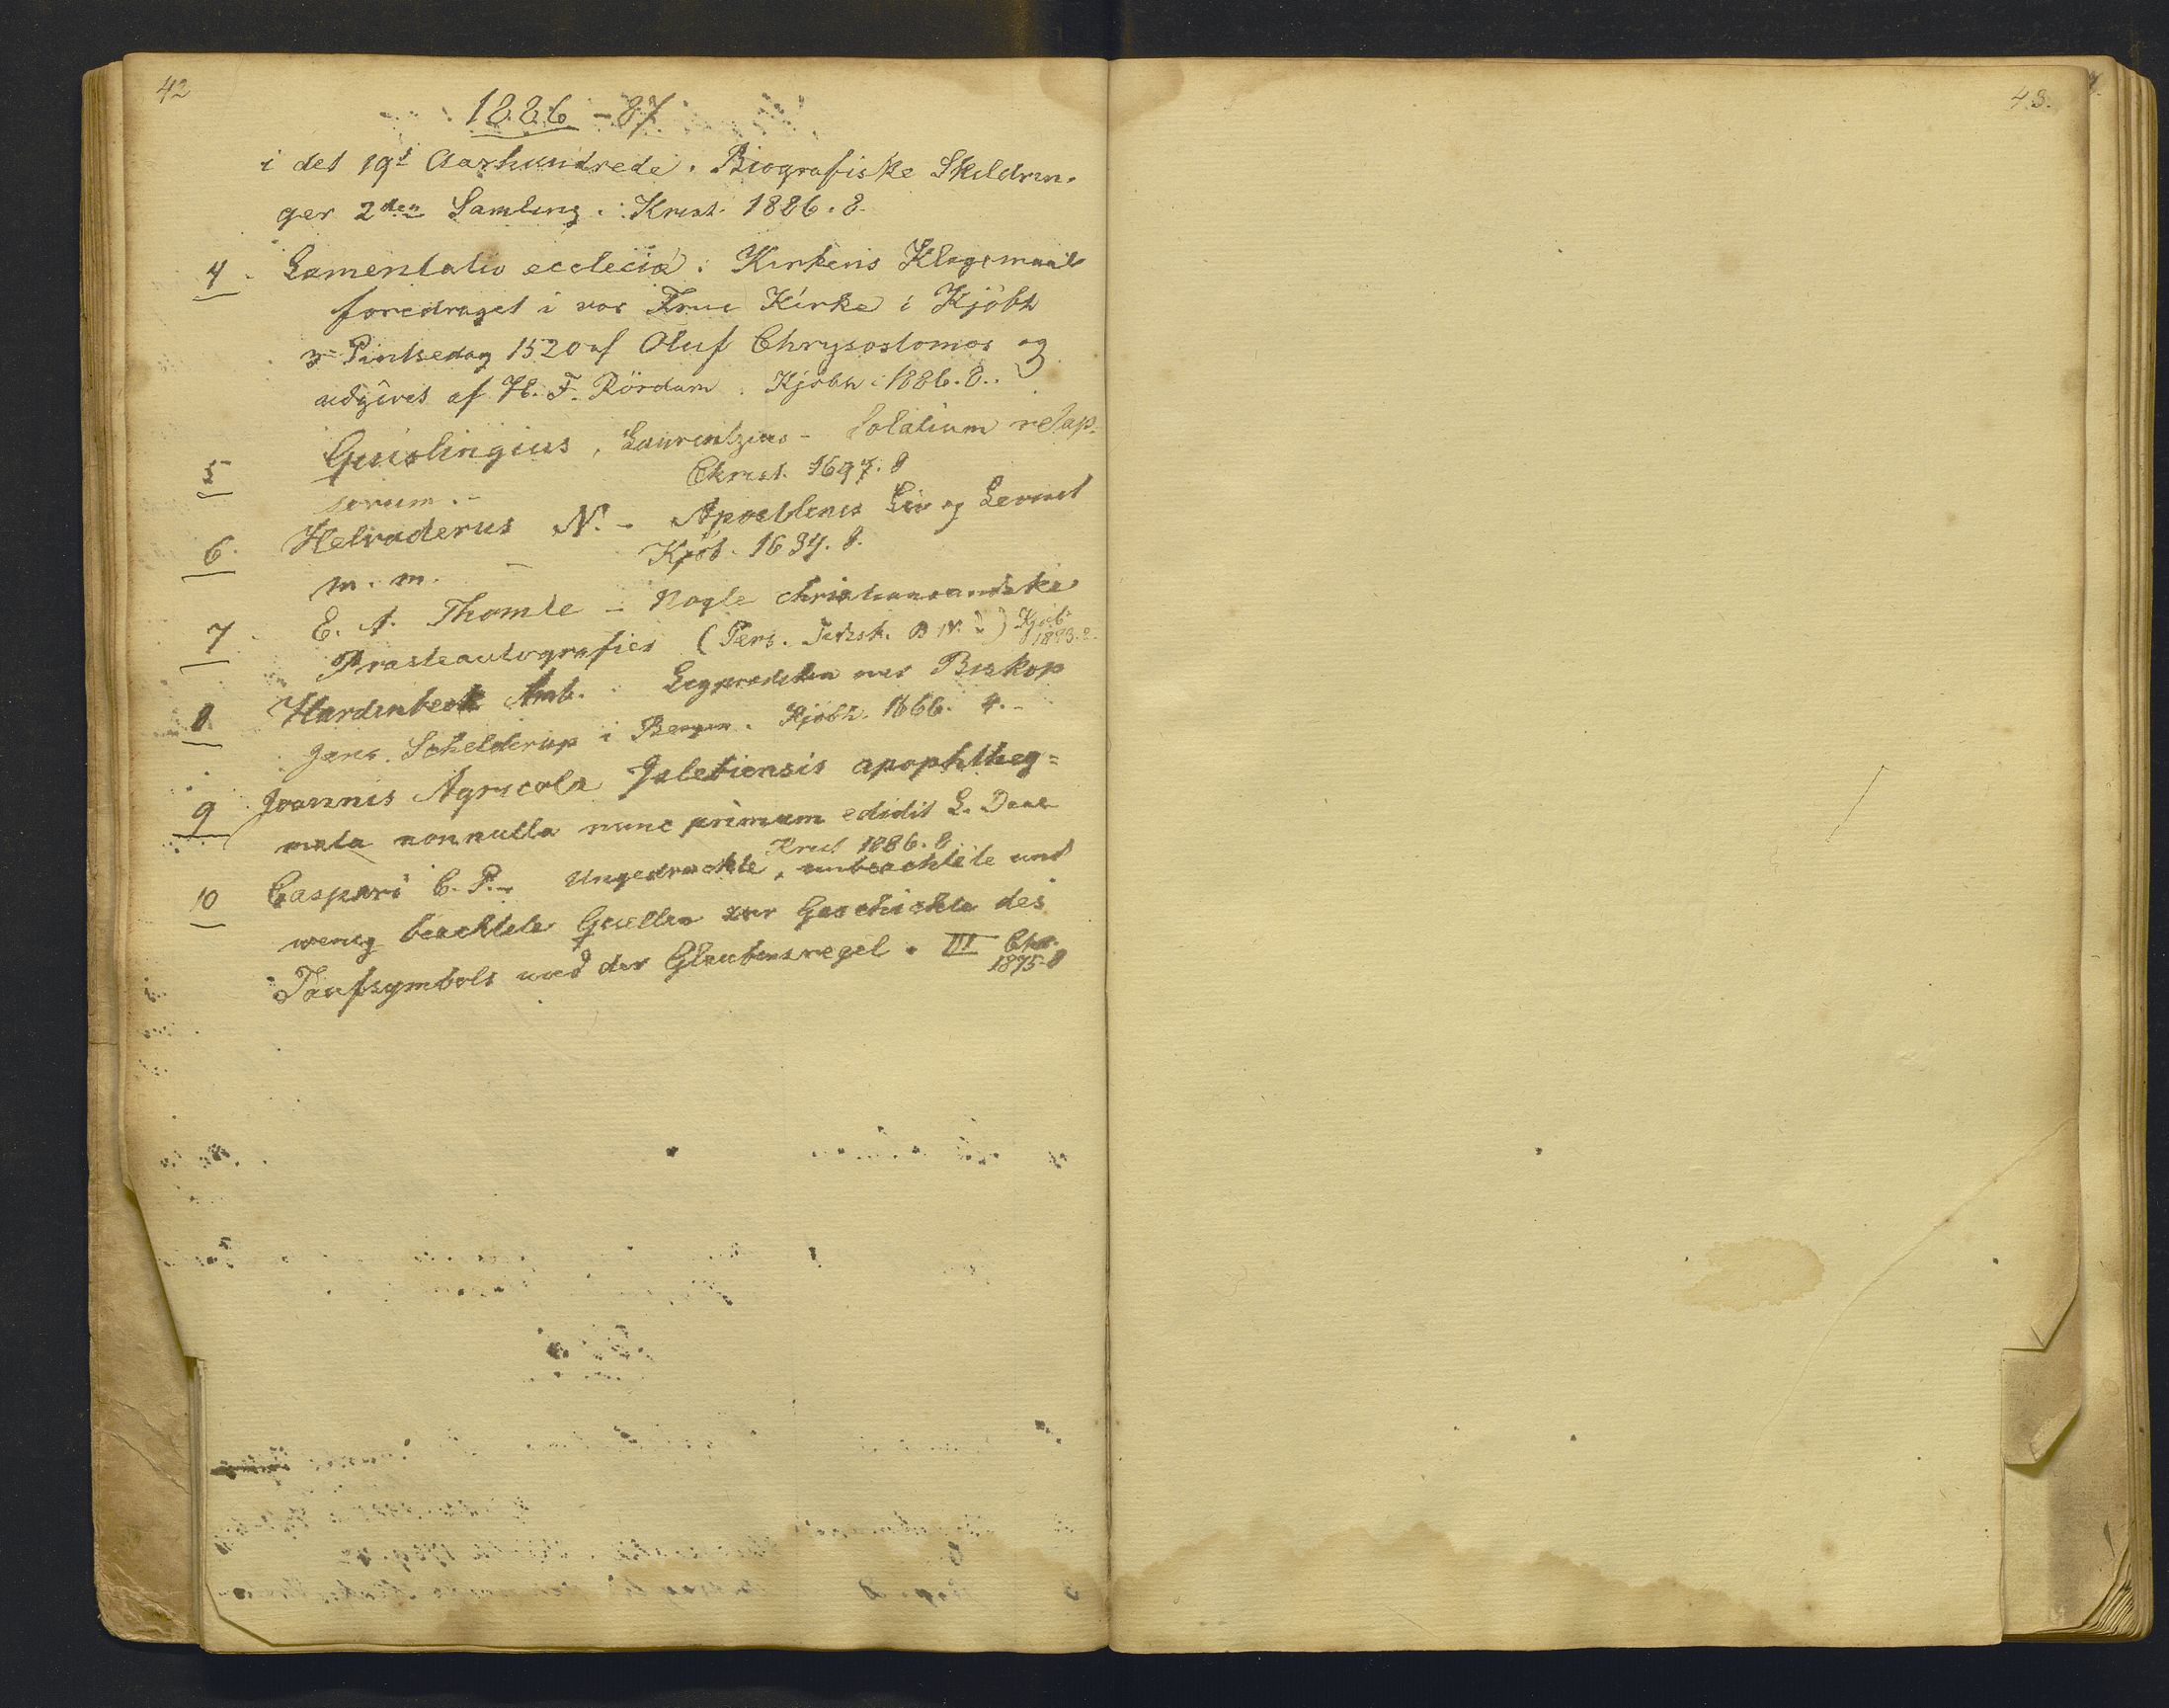 42
1886-87
i det 19d Aarhundrede. Biografiske Skildrin-
ger 2den Samling. Krist. 1886. 8.
4. Lamentatio ecclecia: Kirkens Klagemaal
foredraget i vor Frue Kirke i Kjöbh
Pintsedag 1520 af Oluf Chrysostomos og
udgivet af H. F. Rördam. Kjöbh. 1886. 8.
5 Quislingius, Laurentzius - Solatium relap-
sorum. - Christ. 1697. 8
6. Helvaderus N. - Apostlenes Liv og Levnet
m. m. - Kjöb. 1634. 8.
7. E. A. Thomle - Nogle christianssandske
Præsteautografier (Pers. Tidssk. B IV.) Kjöb
1883. 8.
8 Hardenbeck Amb. Ligprædiken over Biskop
Jens Schelderup i Bergen. Kjöbh. 1666. 4. -
9 Joannis Agricola Islebiensis apophtheg=
mata nonnulla nunc primum edidit L. Daae
Krist 1886. 8
10 Caspari C. P. - Ungedruckte, unbeachtete und
wenig beachtete Quellen zur Geschichte des
Taufsymbols und der Glaubensregel. III Chr.
1875. 8
43.